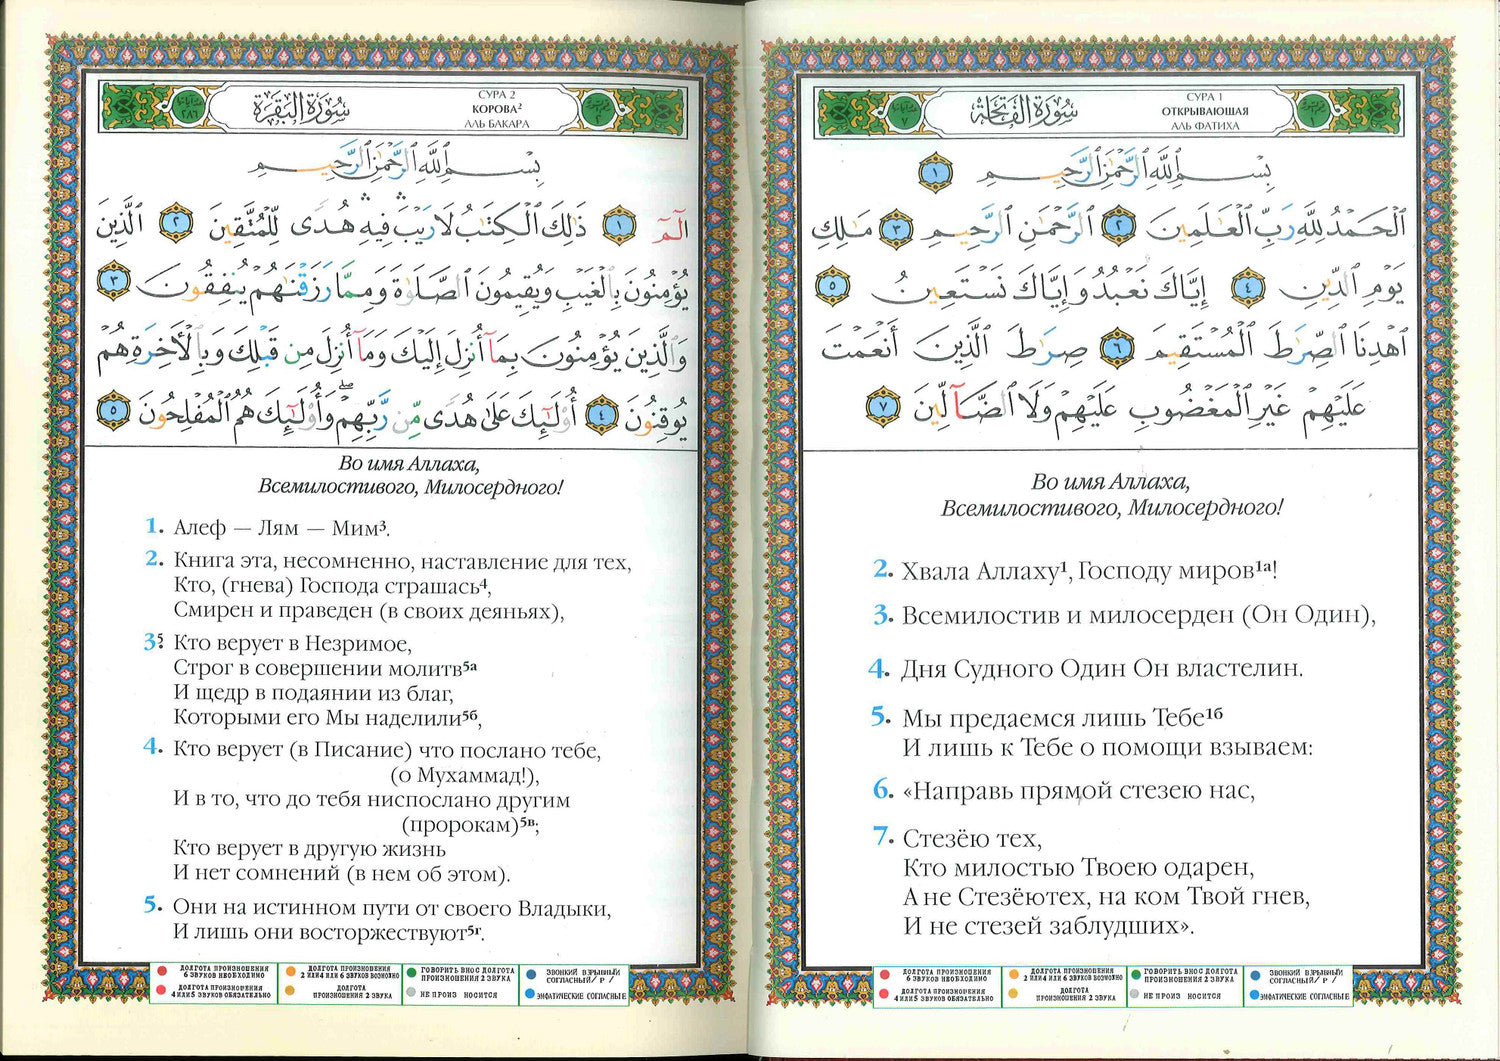 سورة الفاتحة
СУРА 1
ОТКРЫВАЮЩАЯ
АЛЬ ФАТИХА
بِسْمِ ٱللَّهِ ٱلرَّحْمَٰنِ ٱلرَّحِيمِ ١
ٱلْحَمْدُ لِلَّهِ رَبِّ ٱلْعَٰلَمِينَ ٢ ٱلرَّحْمَٰنِ ٱلرَّحِيمِ ٣ مَٰلِكِ
يَوْمِ ٱلدِّينِ ٤ إِيَّاكَ نَعْبُدُ وَإِيَّاكَ نَسْتَعِينُ ٥
ٱهْدِنَا ٱلصِّرَٰطَ ٱلْمُسْتَقِيمَ ٦ صِرَٰطَ ٱلَّذِينَ أَنْعَمْتَ
عَلَيْهِمْ غَيْرِ ٱلْمَغْضُوبِ عَلَيْهِمْ وَلَا ٱلضَّآلِّينَ ٧
Во имя Аллаха,
Всемилостивого, Милосердного!
2. Хвала Аллаху¹, Господу миров¹ᵃ!
3. Всемилостив и милосерден (Он Один),
4. Дня Судного Один Он властелин.
5. Мы предаемся лишь Тебе¹б
И лишь к Тебе о помощи взываем:
6. «Направь прямой стезею нас,
7. Стезёю тех,
Кто милостью Твоею одарен,
А не Стезёютех, на ком Твой гнев,
И не стезей заблудших».
ДОЛГОТА ПРОИЗНОШЕНИЯ
6 ЗВУКОВ НЕОБХОДИМО
ДОЛГОТА ПРОИЗНОШЕНИЯ
4 ИЛИ 5 ЗВУКОВ ОБЯЗАТЕЛЬНО
ДОЛГОТА ПРОИЗНОШЕНИЯ
2 ИЛИ 4 ИЛИ 6 ЗВУКОВ ВОЗМОЖНО
ДОЛГОТА
ПРОИЗНОШЕНИЯ 2 ЗВУКА
ГОВОРИТЬ ВНОС ДОЛГОТА
ПРОИЗНОШЕНИЯ 2 ЗВУКА
НЕ ПРОИЗ НОСИТСЯ
ЗВОНКИЙ ВЗРЫВНЫЙ
СОГЛАСНЫЙ/ Р /
ЭМФАТИЧЕСКИЕ СОГЛАСНЫЕ
سورة البقرة
СУРА 2
КОРОВА²
АЛЬ БАКАРА
بِسْمِ ٱللَّهِ ٱلرَّحْمَٰنِ ٱلرَّحِيمِ
الٓمٓ ١ ذَٰلِكَ ٱلْكِتَٰبُ لَا رَيْبَ ۛ فِيهِ ۛ هُدًى لِّلْمُتَّقِينَ ٢ ٱلَّذِينَ
يُؤْمِنُونَ بِٱلْغَيْبِ وَيُقِيمُونَ ٱلصَّلَوٰةَ وَمِمَّا رَزَقْنَٰهُمْ يُنفِقُونَ ٣
وَٱلَّذِينَ يُؤْمِنُونَ بِمَآ أُنزِلَ إِلَيْكَ وَمَآ أُنزِلَ مِن قَبْلِكَ وَبِٱلْءَاخِرَةِ هُمْ
يُوقِنُونَ ٤ أُو۟لَٰٓئِكَ عَلَىٰ هُدًى مِّن رَّبِّهِمْ ۖ وَأُو۟لَٰٓئِكَ هُمُ ٱلْمُفْلِحُونَ ٥
Во имя Аллаха,
Всемилостивого, Милосердного!
1. Алеф — Лям — Мим³.
2. Книга эта, несомненно, наставление для тех,
Кто, (гнева) Господа страшась⁴,
Смирен и праведен (в своих деяньях),
3⁵. Кто верует в Незримое,
Строг в совершении молитв⁵ᵃ
И щедр в подаянии из благ,
Которыми его Мы наделили⁵б,
4. Кто верует (в Писание) что послано тебе,
(о Мухаммад!),
И в то, что до тебя ниспослано другим
(пророкам)⁵в;
Кто верует в другую жизнь
И нет сомнений (в нем об этом).
5. Они на истинном пути от своего Владыки,
И лишь они восторжествуют⁵г.
ДОЛГОТА ПРОИЗНОШЕНИЯ
6 ЗВУКОВ НЕОБХОДИМО
ДОЛГОТА ПРОИЗНОШЕНИЯ
4 ИЛИ 5 ЗВУКОВ ОБЯЗАТЕЛЬНО
ДОЛГОТА ПРОИЗНОШЕНИЯ
2 ИЛИ 4 ИЛИ 6 ЗВУКОВ ВОЗМОЖНО
ДОЛГОТА
ПРОИЗНОШЕНИЯ 2 ЗВУКА
ГОВОРИТЬ ВНОС ДОЛГОТА
ПРОИЗНОШЕНИЯ 2 ЗВУКА
НЕ ПРОИЗ НОСИТСЯ
ЗВОНКИЙ ВЗРЫВНЫЙ
СОГЛАСНЫЙ/ Р /
ЭМФАТИЧЕСКИЕ СОГЛАСНЫЕ